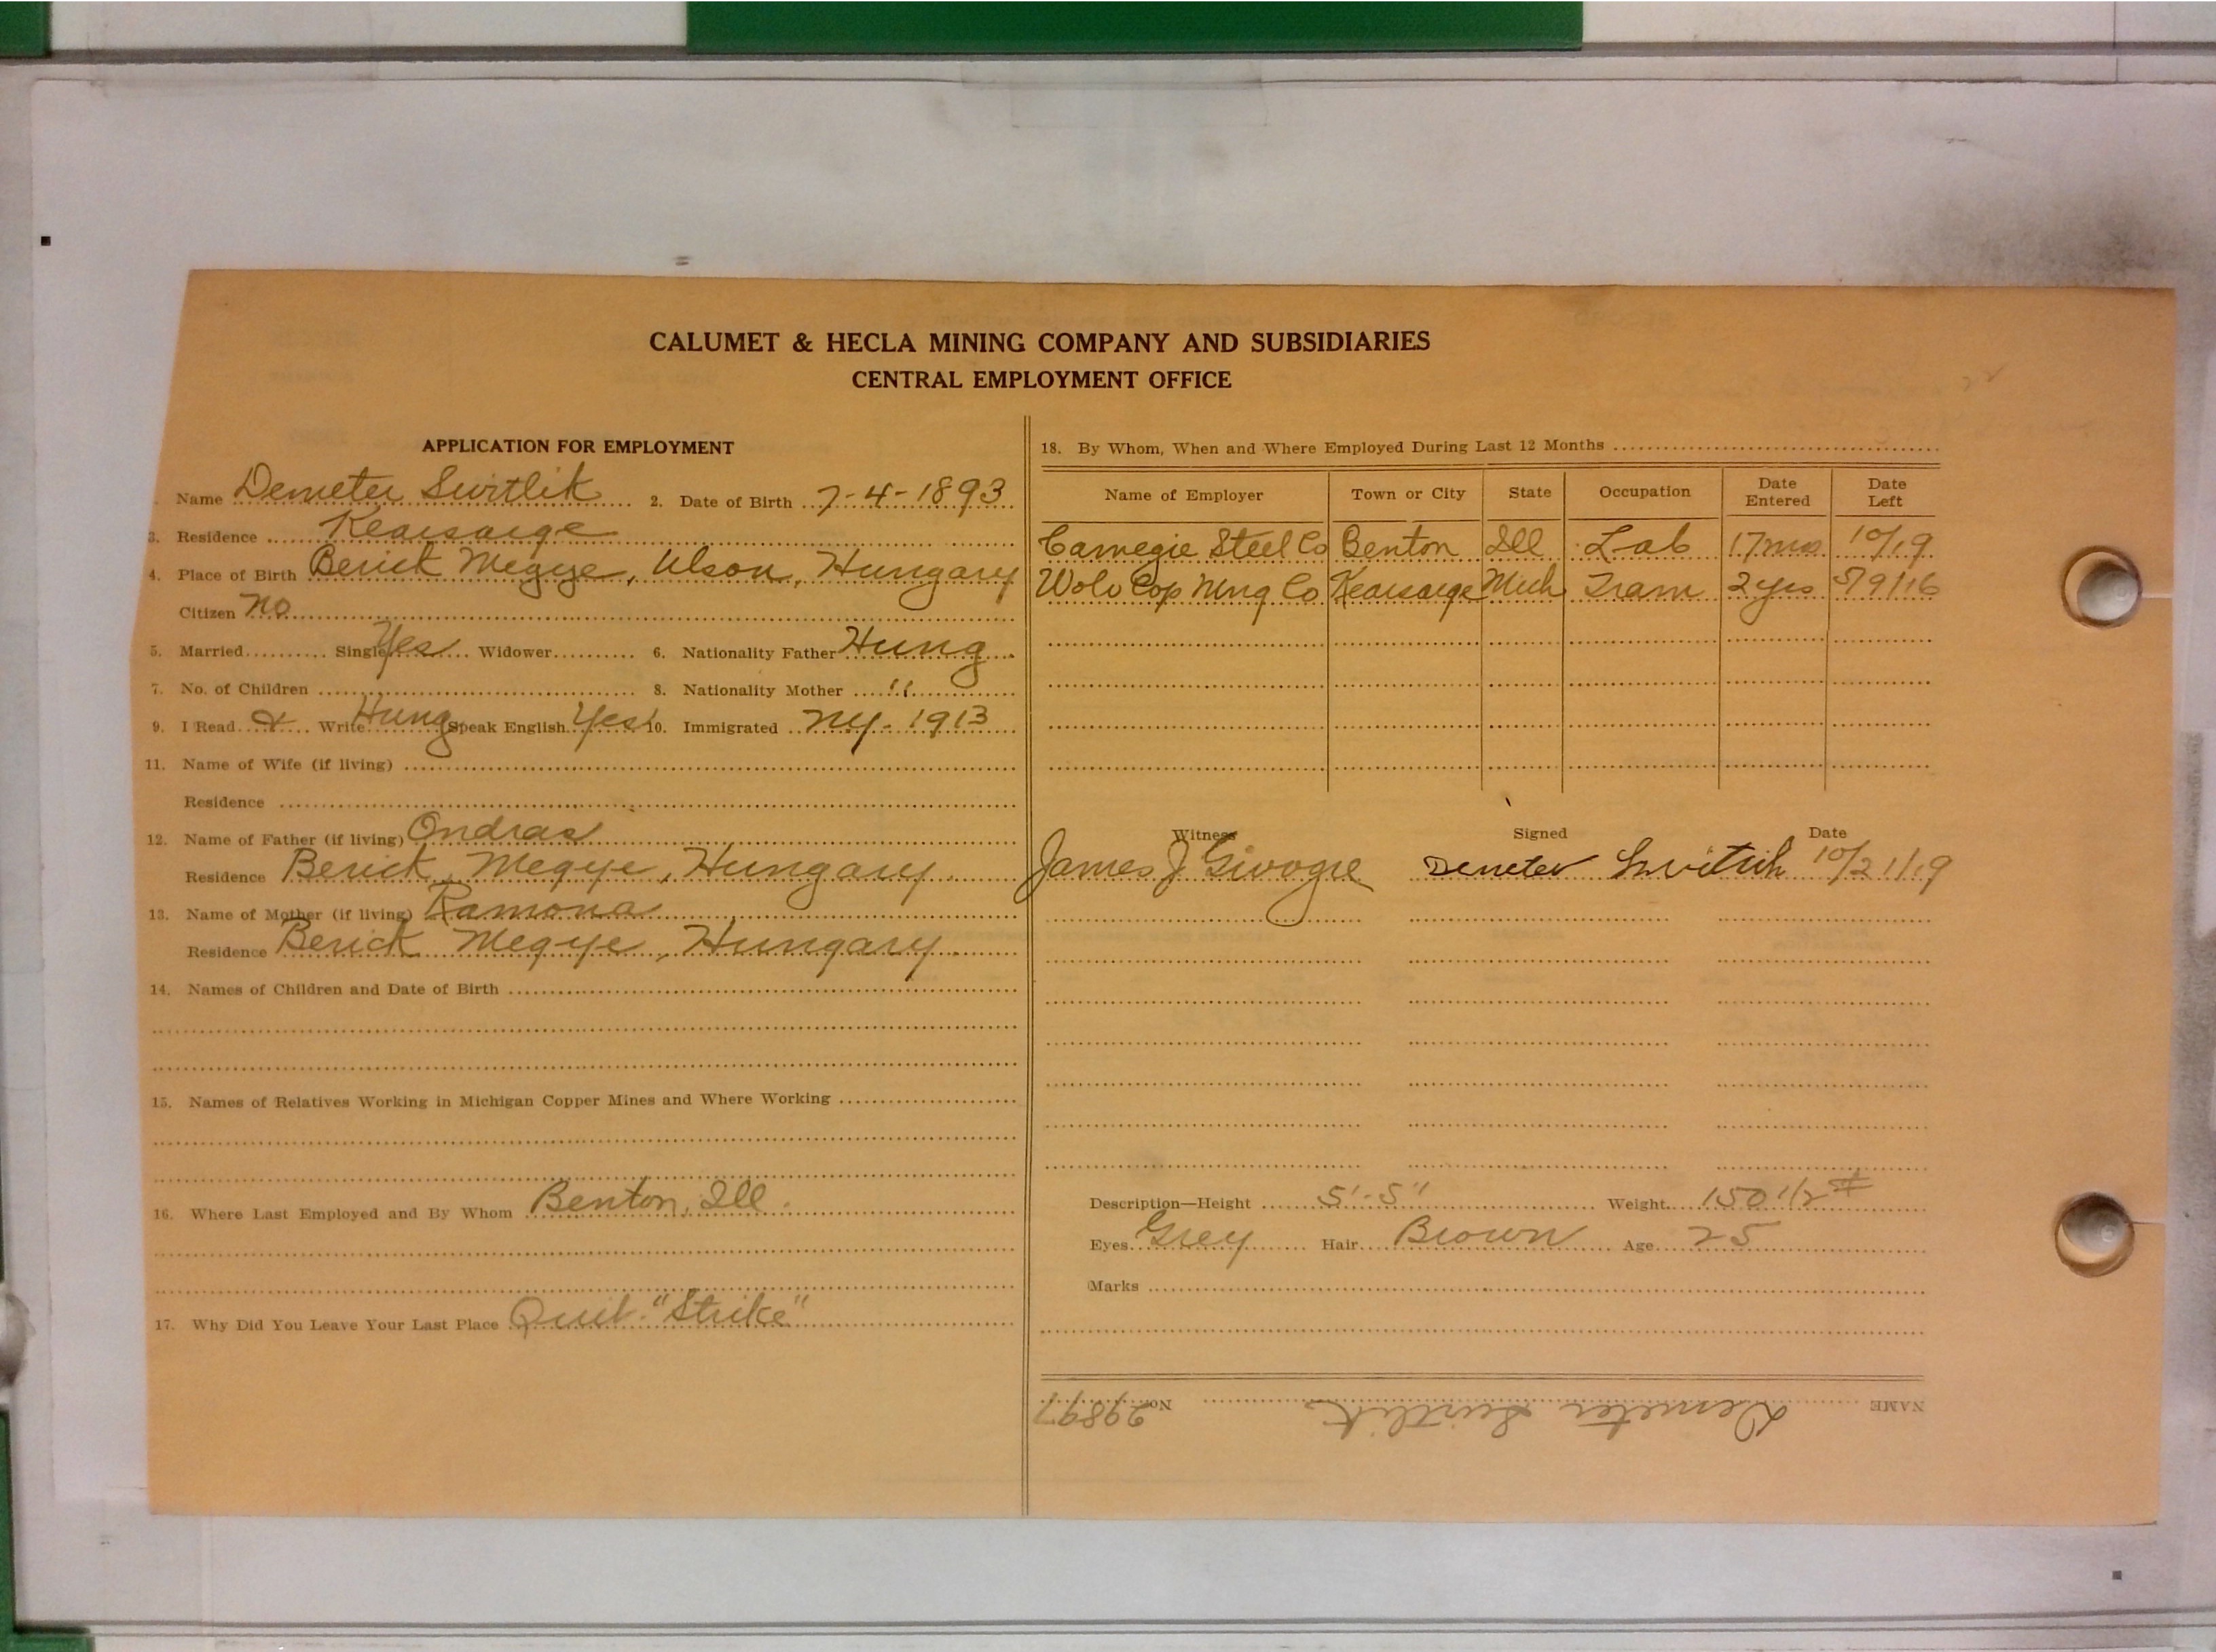 CALUMET & HECLA MINING COMPANY AND SUBSIDIARIES
CENTRAL EMPLOYMENT OFFICE
APPLICATION FOR EMPLOYMENT
Name Demeter Switlik 2. Date of Birth 7-4-1893
3. Residence Kearsarge
4. Place of Birth Berick Megye, Ulson, Hungary
Citizen no
5. Married Single Yes Widower 6. Nationality Father Hung
7. No. of Children 8. Nationality Mother "
9. I Read & Write Hung Speak English Yes 10. Immigrated NY-1913
11. Name of Wife (if living)
Residence
12. Name of Father (if living) Ondras
Residence Berick Megye, Hungary
13. Name of Mother (if living) Ramona
Residence Berick Megye, Hungary
14. Names of Children and Date of Birth
15. Names of Relatives Working in Michigan Copper Mines and Where Working
16. Where Last Employed and By Whom Benton, Ill.
17. Why Did You Leave Your Last Place Quit-"Strike"
18. By Whom, When and Where Employed During Last 12 Months
Name of Employer Town or City State Occupation Date Entered Date Left
Carnegie Steel Co Benton Ill Lab 17 mo 10/19
Wolv Cop Mng Co Kearsarge Mich Tram 2 yrs 5/9/16
Witness Signed Date
James J Demeter 10/21/19
Description—Height 5'-5" Weight 150 1/2 #
Eyes Grey Hair Brown Age 25
Marks
NAME Demeter Switlik No. 29897